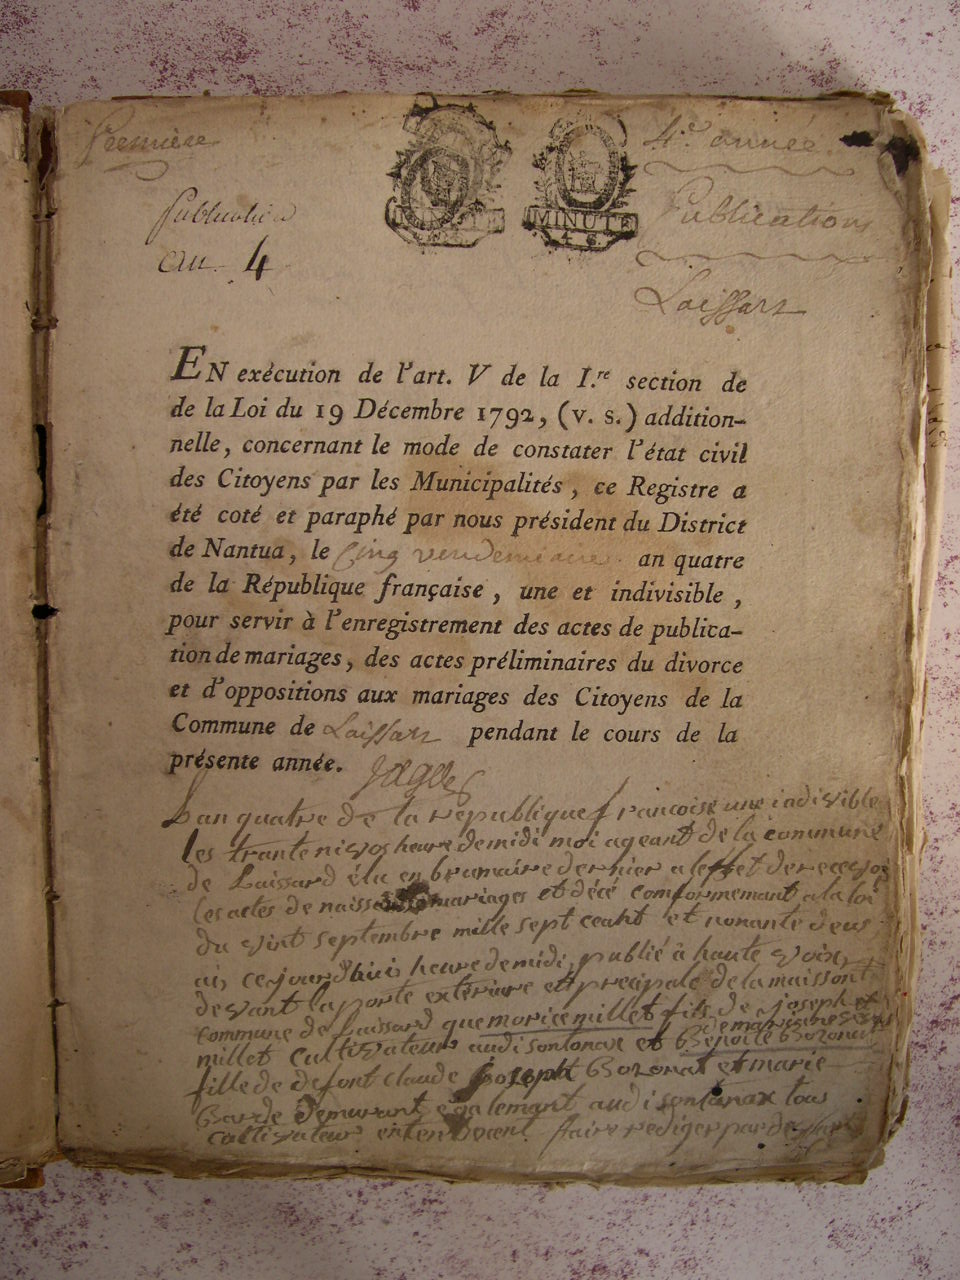 Première
4.e année.
Publication
Publications
an 4
MINUTE
MINUTE
Laissart
EN exécution de l'art. V de la I.re section de
de la Loi du 19 Décembre 1792, (v. s.) addition-
nelle, concernant le mode de constater l'état civil
des Citoyens par les Municipalités, ce Registre a
été coté et paraphé par nous président du District
de Nantua, le cinq vendemiaire an quatre
de la République française, une et indivisible,
pour servir à l'enregistrement des actes de publica-
tion de mariages, des actes préliminaires du divorce
et d'oppositions aux mariages des Citoyens de la
Commune de Laissart pendant le cours de la
présente année.
Lan quatre de la republique francoise une indivisible
les trante nivos heure de midi moi ageant de la commune
de Laissard élu en brumaire dernier a leffet de recevoi
les actes de mariages et décé comformemant a la loi
du vint septembre mille sept ceant et nonante deus
ai cejourdhui heure de midi, publié à haute voix,
devant la porte extériure et precipale de la maisson
commune de Laissard que morice millet fils de joseph et
millet cultivateur audisontonax et Benoite Bozonat
fille de defont claude joseph Bozonat et marie
demurant égalemant audisontanax tous
cultivateur entendocent faire rediger par